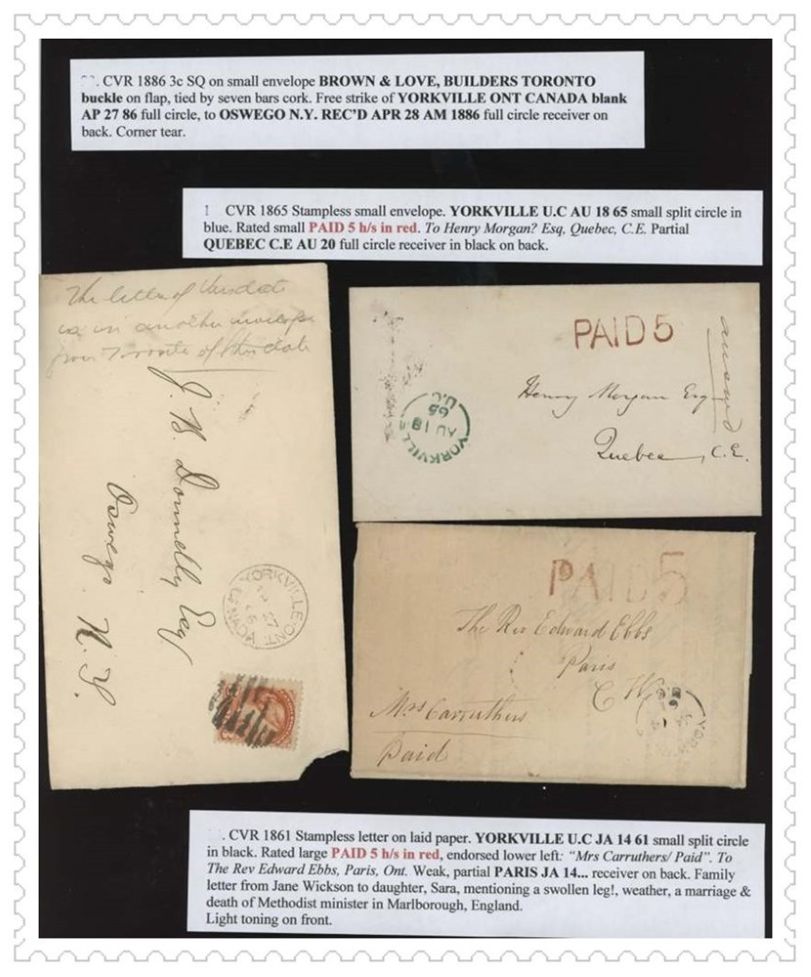 . CVR 1886 3c SQ on small envelope BROWN & LOVE, BUILDERS TORONTO
buckle on flap, tied by seven bars cork. Free strike of YORKVILLE ONT CANADA blank
AP 27 86 full circle, to OSWEGO N.Y. REC'D APR 28 AM 1886 full circle receiver on
back. Corner tear.
CVR 1865 Stampless small envelope. YORKVILLE U.C AU 18 65 small split circle in
blue. Rated small PAID 5 h/s in red. To Henry Morgan? Esq, Quebec, C.E. Partial
QUEBEC C.E AU 20 full circle receiver in black on back.
The letter of this date
is in another envelope
from Toronto of this date
J. B. Donnelly Esq
Oswego
N. Y.
YORKVILLE ONT
27
CANADA
PAID 5
answd
Henry Morgan Esq
Quebec, C.E.
YORKVILLE
AU 18
65
U.C
PAID 5
The Rev Edward Ebbs
Paris
C W
Mrs Carruthers
Paid
YORK
. CVR 1861 Stampless letter on laid paper. YORKVILLE U.C JA 14 61 small split circle
in black. Rated large PAID 5 h/s in red, endorsed lower left: "Mrs Carruthers/ Paid". To
The Rev Edward Ebbs, Paris, Ont. Weak, partial PARIS JA 14... receiver on back. Family
letter from Jane Wickson to daughter, Sara, mentioning a swollen leg!, weather, a marriage &
death of Methodist minister in Marlborough, England.
Light toning on front.